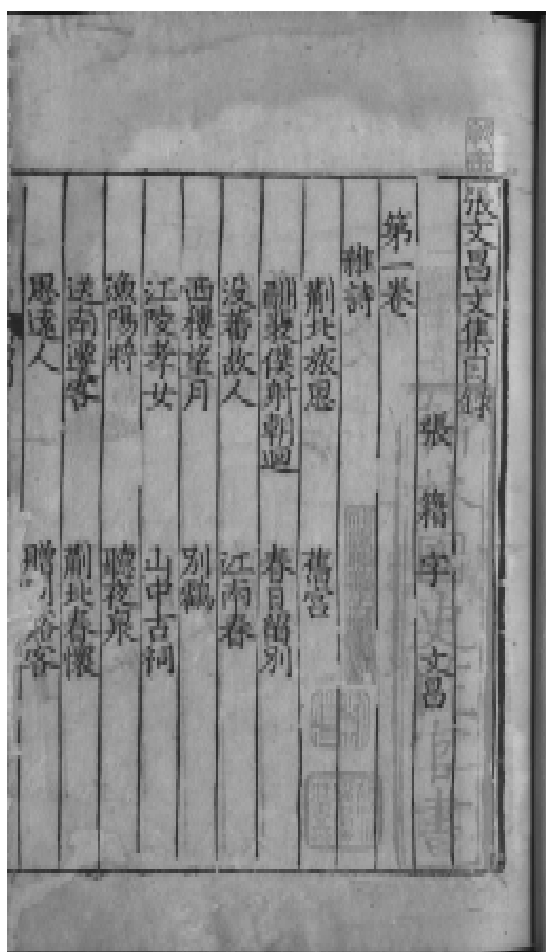 張文昌文集目錄
張籍字文昌
第一卷
雜詩
薊北旅思 舊宮
酬裴僕射朝迴 春日留別
没蕃故人 江南春
西樓望月 別鶴
江陵孝女 山中古祠
漁陽將 聽夜泉
送南遷客 薊北春懷
思遠人 贈 客